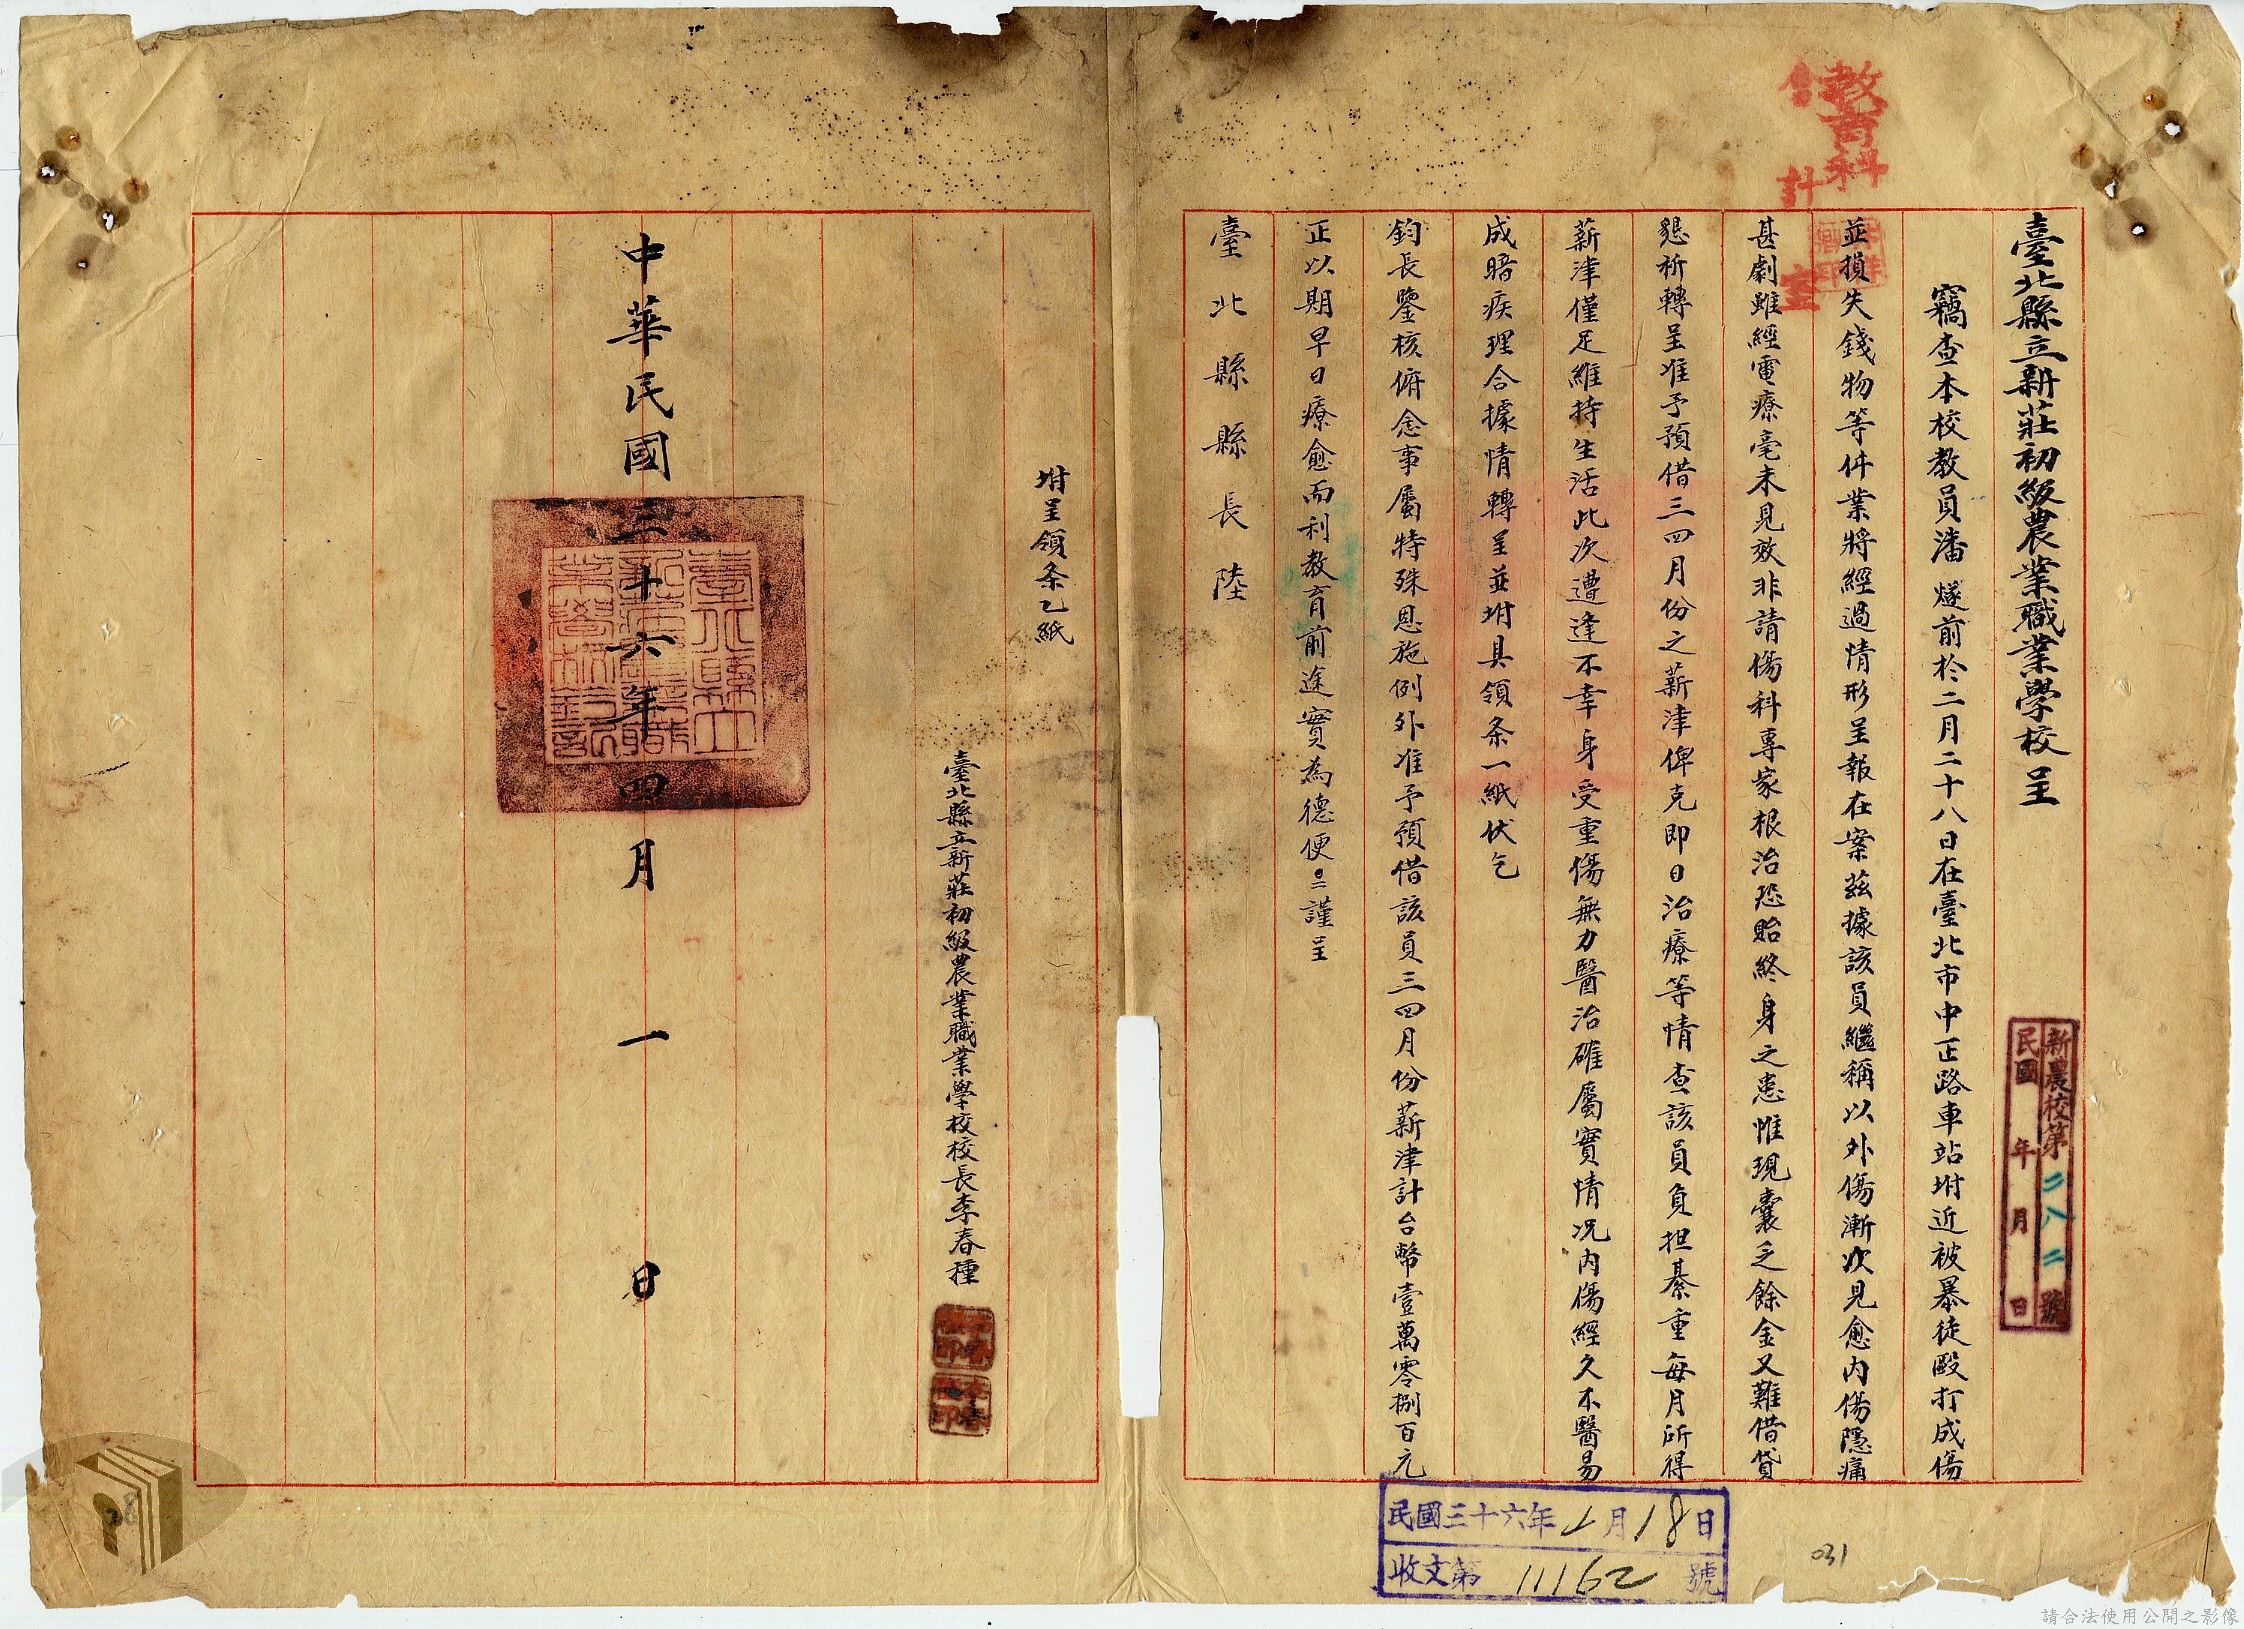 臺北縣立新莊初級農業職業學校呈
新農校第二八二號
民國 年 月 日
教育科
會計室
竊查本校教員潘燧前於二月二十八日在臺北市中正路車站坿近被暴徒毆打成傷
並損失錢物等件業將經過情形呈報在案茲據該員繼稱以外傷漸次見愈內傷隱痛
甚劇雖經電療毫未見效非請傷科專家根治恐貽終身之患惟現囊乏餘金又難借貸
懇祈轉呈准予預借三四月份之薪津俾克即日治療等情查該員負担綦重每月所得
薪津僅足維持生活此次遭逢不幸身受重傷無力醫治確屬實情況內傷經久不醫易
成暗疾理合據情轉呈並坿具領条一紙伏乞
鈞長鑒核俯念事屬特殊恩施例外准予預借該員三四月份薪津計台幣壹萬零捌百元
正以期早日療愈而利教育前途實為德便謹呈
臺北縣縣長陸
坿呈領条乙紙
臺北縣立新莊初級農業職業學校校長李春種
中華民國三十六年四月一日
民國三十六年 月18日
收文第11162號
031
請合法使用公開之影像